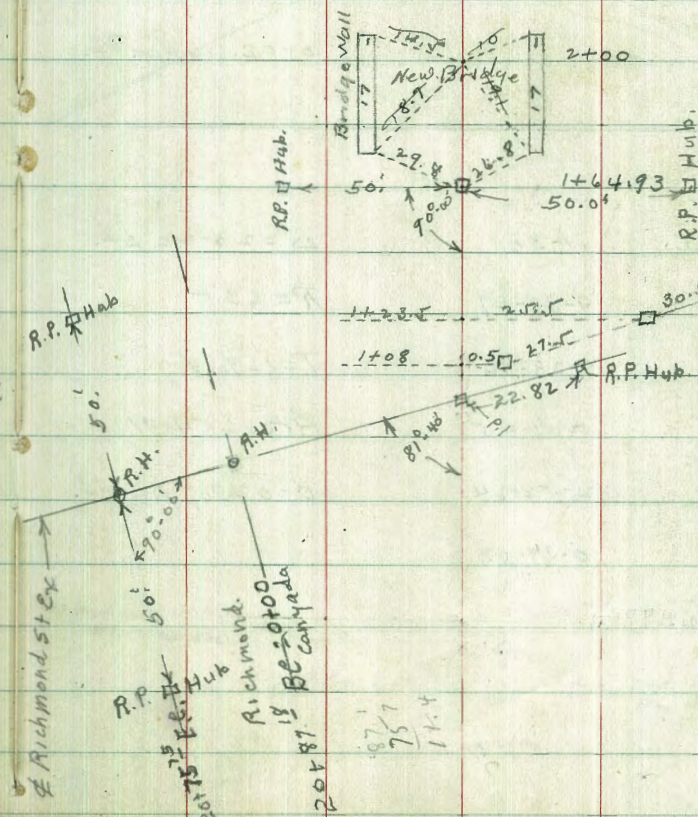 Bridge Wall
10
2+00
New Bridge
17
18.7
17
29.8
26.8
R.P. Hub.
50.'
1+64.93
50.0'
R.P. Hub
90°.00'
R.P. Hub
1+23.5
25.5
30.
1+08
0.5
27.5
R.P. Hub.
22.82
P.I
81°.40'
50.'
R.H.
R.H.
90°-00'
50.'
℄ Richmond St Ex
Richmond.
BC = 0+00
Canyada
R.P. Hub
20+87
87
75
11.4